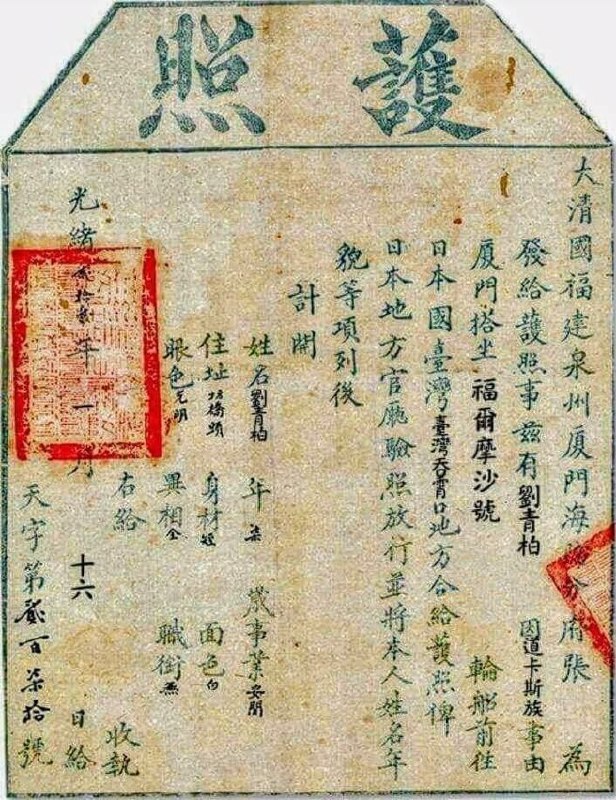 護照
大清國福建泉州廈門海防分府張 為
發給護照事茲有劉青柏 因道卡斯族事由
廈門搭坐福爾摩沙號 輪船前往
日本國臺灣臺灣吞霄口地方合給護照俾
日本地方官廳驗照放行並將本人姓名年
貌等項列後
計開
姓名劉青柏 年柒 歲事業安閒
住址坊橋頭 身材短 面色白
眼色光明 異相全 職銜無
右給 收執
光緒 年一月 十六 日給
天字第貳百柒拾號